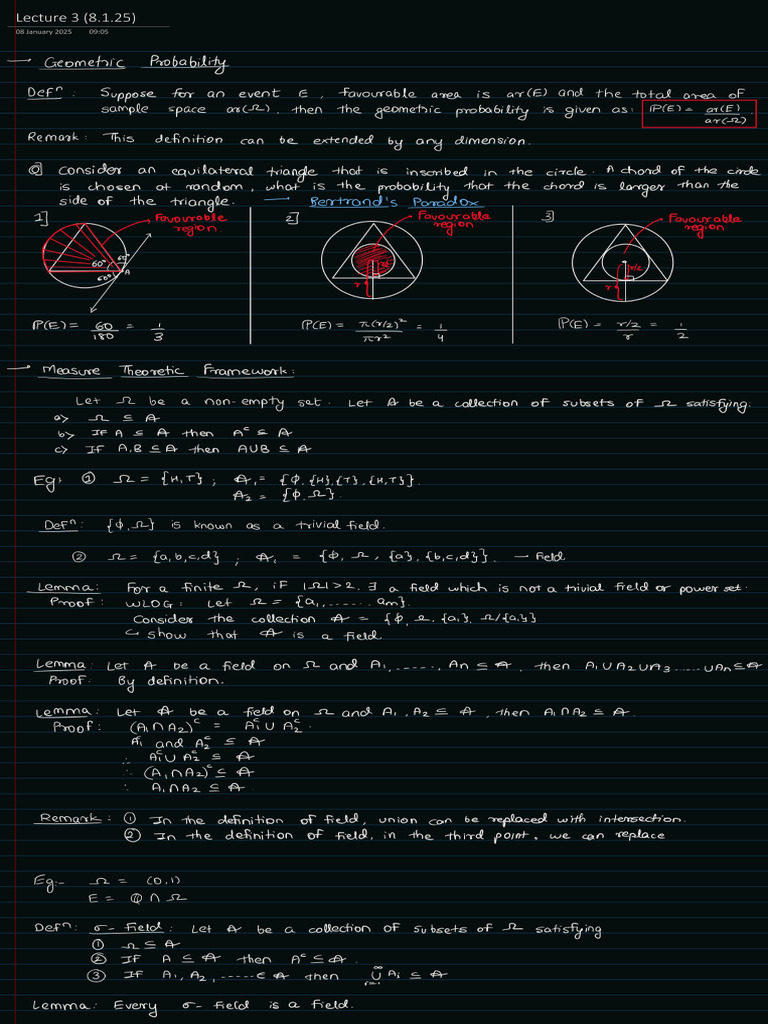 Lecture 3 (8.1.25)
08 January 2025 09:05
→ Geometric Probability
Defⁿ: Suppose for an event E, favourable area is ar(E) and the total area of
sample space ar(Ω), then the geometric probability is given as: P(E) = ar(E)/ar(Ω).
Remark: This definition can be extended by any dimension.
Q] Consider an equilateral triangle that is inscribed in the circle. A chord of the circle
is chosen at random, what is the probability that the chord is larger than the
side of the triangle. → Bertrand's Paradox
1] Favourable region.
60° 60° 60° A
P(E) = 60/180 = 1/3
2] Favourable region
r/2 r
P(E) = π(r/2)²/πr² = 1/4
3] Favourable region
r/2 r
P(E) = r/2/r = 1/2
→ Measure Theoretic Framework:
Let Ω be a non-empty set. Let A be a collection of subsets of Ω satisfying.
a> Ω ⊆ A
b> If A ⊆ A then Aᶜ ⊆ A
c> If A,B ⊆ A then AUB ⊆ A
Eg: ① Ω = {H,T} ; A₁ = {ϕ, {H}, {T}, {H,T}}.
A₂ = {ϕ, Ω}.
Defⁿ: {ϕ, Ω} is known as a trivial field.
② Ω = {a,b,c,d} ; A₁ = {ϕ, Ω, {a}, {b,c,d}}. → Field
Lemma: For a finite Ω, if |Ω|>2, ∃ a field which is not a trivial field or power set.
Proof: WLOG: Let Ω = {a₁, ...... am}.
Consider the collection A = {ϕ, Ω, {a₁}, Ω/{a₁}}
↪ show that A is a field
Lemma: Let A be a field on Ω and A₁, ......, An ⊆ A, then A₁ U A₂ U A₃ ...... U An ⊆ A
Proof: By definition.
Lemma: Let A be a field on Ω and A₁, A₂ ⊆ A, then A₁ ∩ A₂ ⊆ A.
Proof: (A₁ ∩ A₂)ᶜ = A₁ᶜ U A₂ᶜ.
A₁ᶜ and A₂ᶜ ⊆ A
∴ A₁ᶜ U A₂ᶜ ⊆ A
∴ (A₁ ∩ A₂)ᶜ ⊆ A
∴ A₁ ∩ A₂ ⊆ A.
Remark: ① In the definition of field, union can be replaced with intersection.
② In the definition of field, in the third point, we can replace
Eg:- Ω = (0,1)
E = Q ∩ Ω
Defⁿ: σ- Field: Let A be a collection of subsets of Ω satisfying
① Ω ⊆ A
② If A ⊆ A then Aᶜ ⊆ A.
③ If A₁, A₂, ...... ∈ A then ∞ U i=1 Ai ⊆ A
Lemma: Every σ- field is a field.